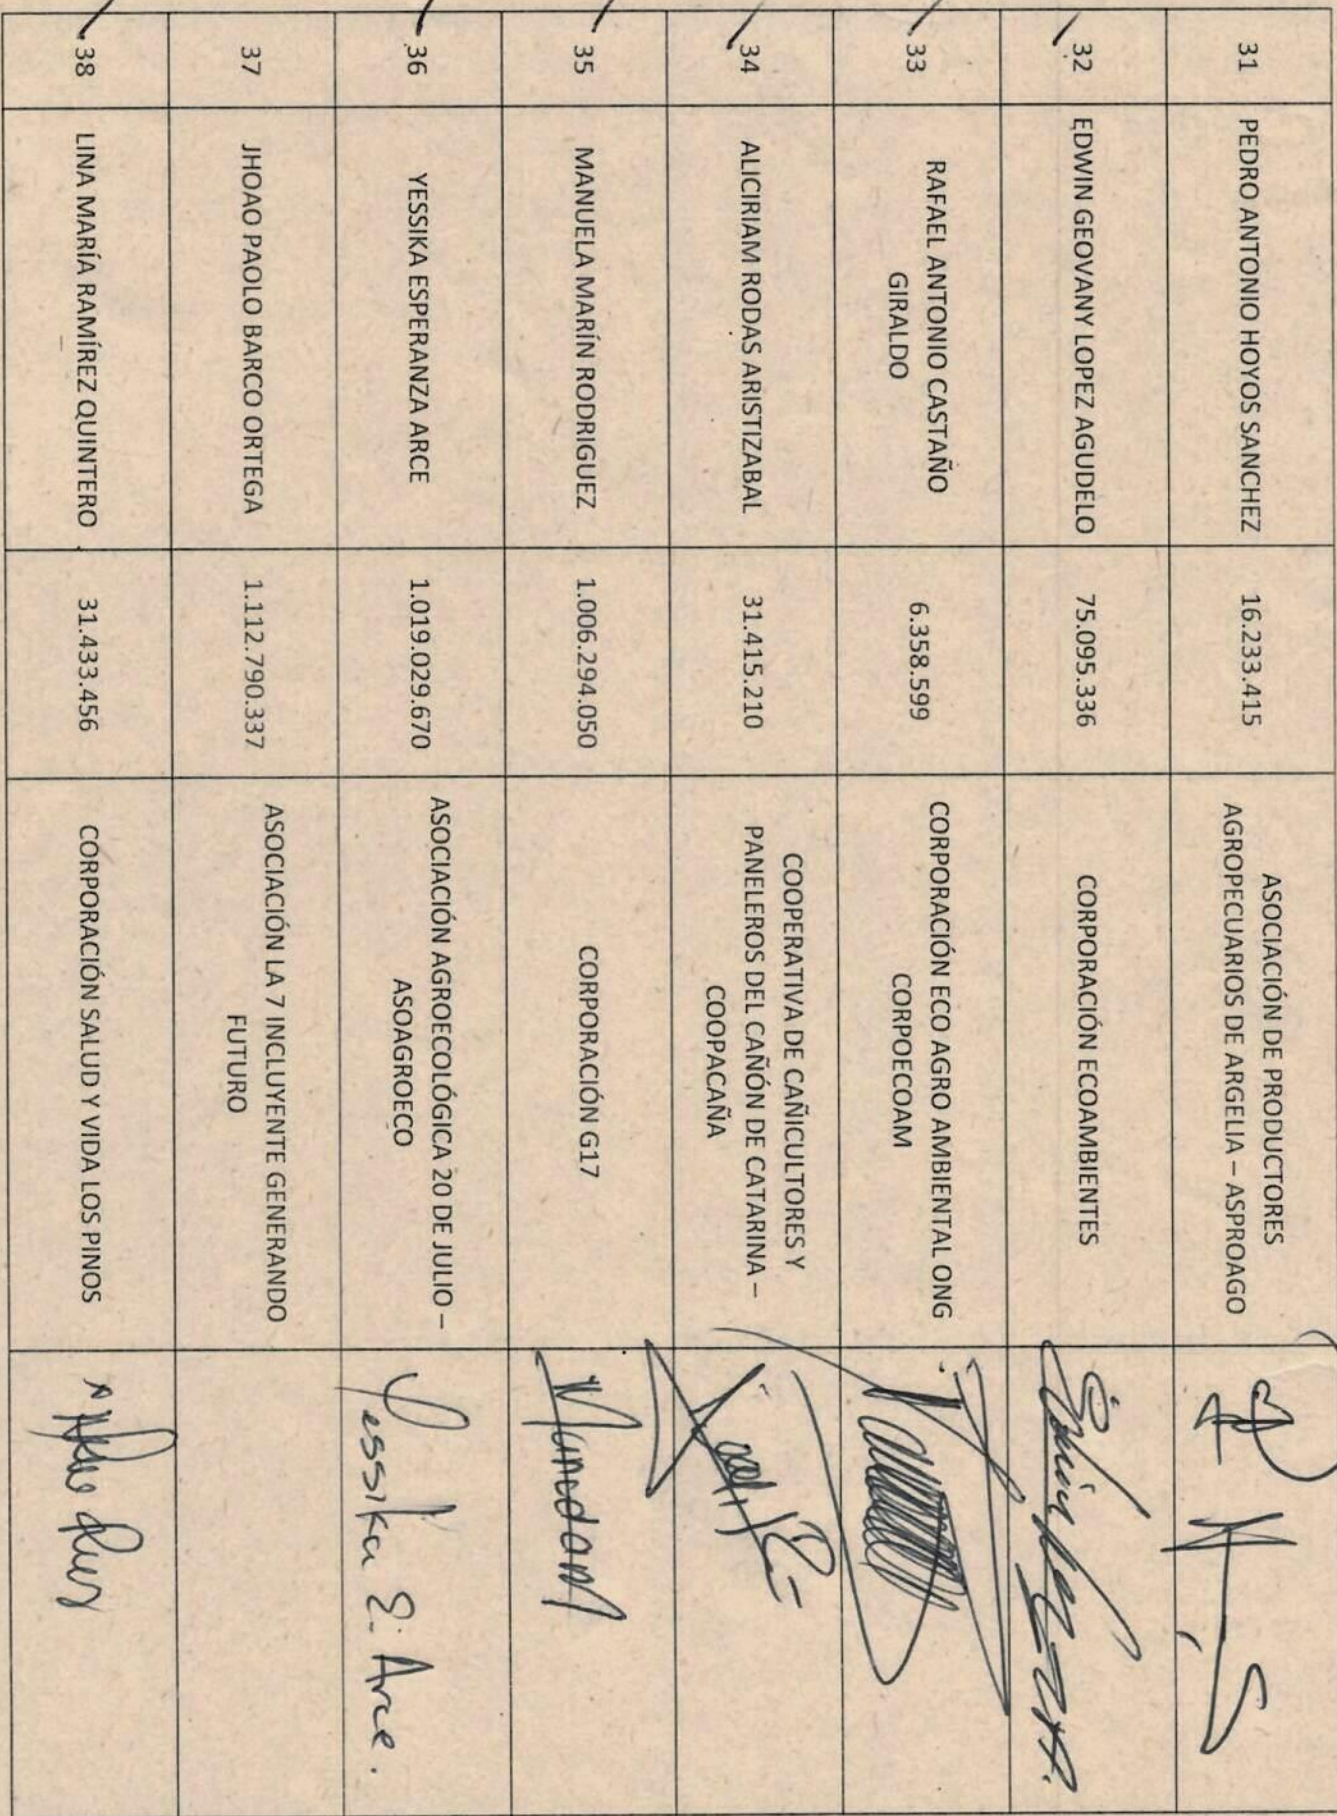 31
PEDRO ANTONIO HOYOS SANCHEZ
16.233.415
ASOCIACIÓN DE PRODUCTORES
AGROPECUARIOS DE ARGELIA – ASPROAGO
32
EDWIN GEOVANY LOPEZ AGUDELO
75.095.336
CORPORACIÓN ECOAMBIENTES
33
RAFAEL ANTONIO CASTAÑO
GIRALDO
6.358.599
CORPORACIÓN ECO AGRO AMBIENTAL ONG
CORPOECOAM
34
ALICIRIAM RODAS ARISTIZABAL
31.415.210
COOPERATIVA DE CAÑICULTORES Y
PANELEROS DEL CAÑÓN DE CATARINA –
COOPACAÑA
35
MANUELA MARÍN RODRIGUEZ
1.006.294.050
CORPORACIÓN G17
36
YESSIKA ESPERANZA ARCE
1.019.029.670
ASOCIACIÓN AGROECOLÓGICA 20 DE JULIO –
ASOAGROECO
Yessika E. Arce.
37
JHOAO PAOLO BARCO ORTEGA
1.112.790.337
ASOCIACIÓN LA 7 INCLUYENTE GENERANDO
FUTURO
38
LINA MARÍA RAMÍREZ QUINTERO
31.433.456
CORPORACIÓN SALUD Y VIDA LOS PINOS